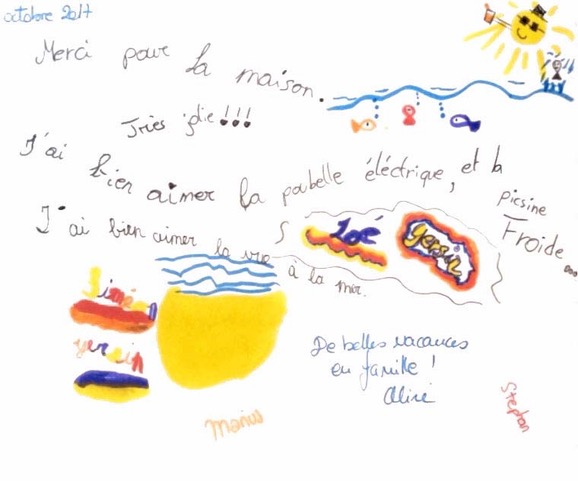 octobre 2017
Merci pour la maison.
Tries jolie!!!
J'ai bien aimer la poubelle électrique, et la
picsine
Froide...
J'ai bien aimer la vue
à la mer.
Zoé
yersin
Siméon
yersin
De belles vacances
en famille !
Marius
Stephan